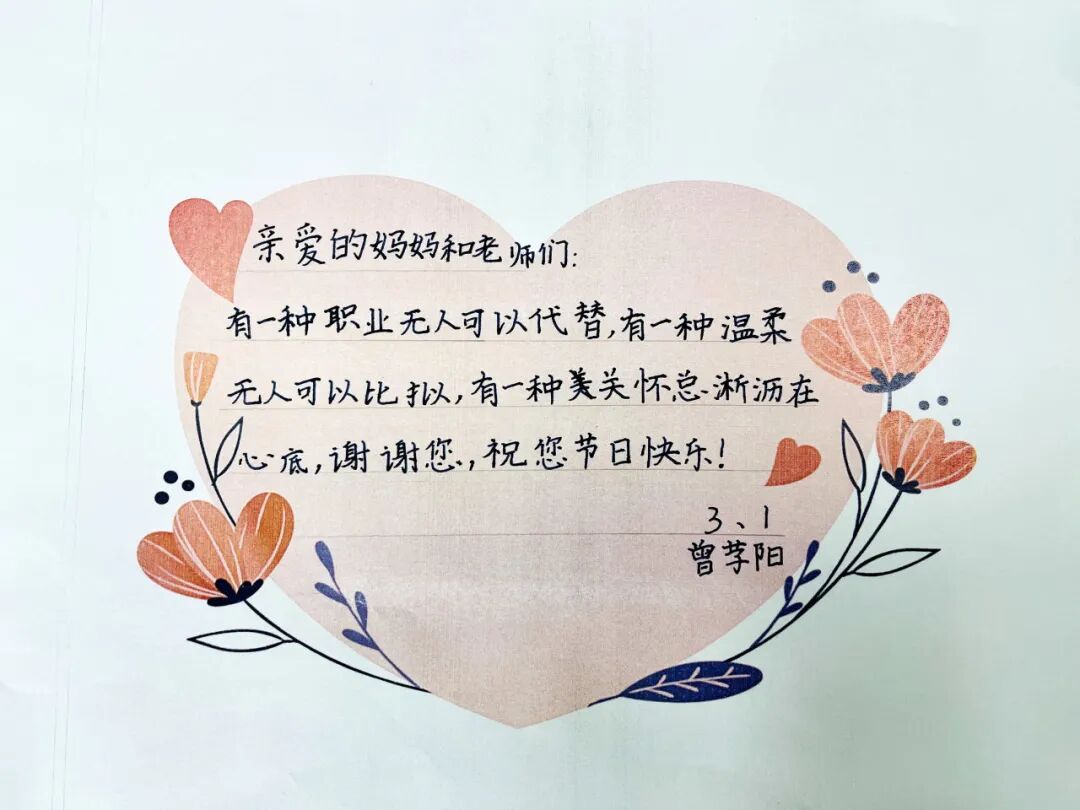 亲爱的妈妈和老师们:
有一种职业无人可以代替,有一种温柔
无人可以比拟,有一种关怀总淅沥在
心底,谢谢您,祝您节日快乐!
3、1
曾莩阳